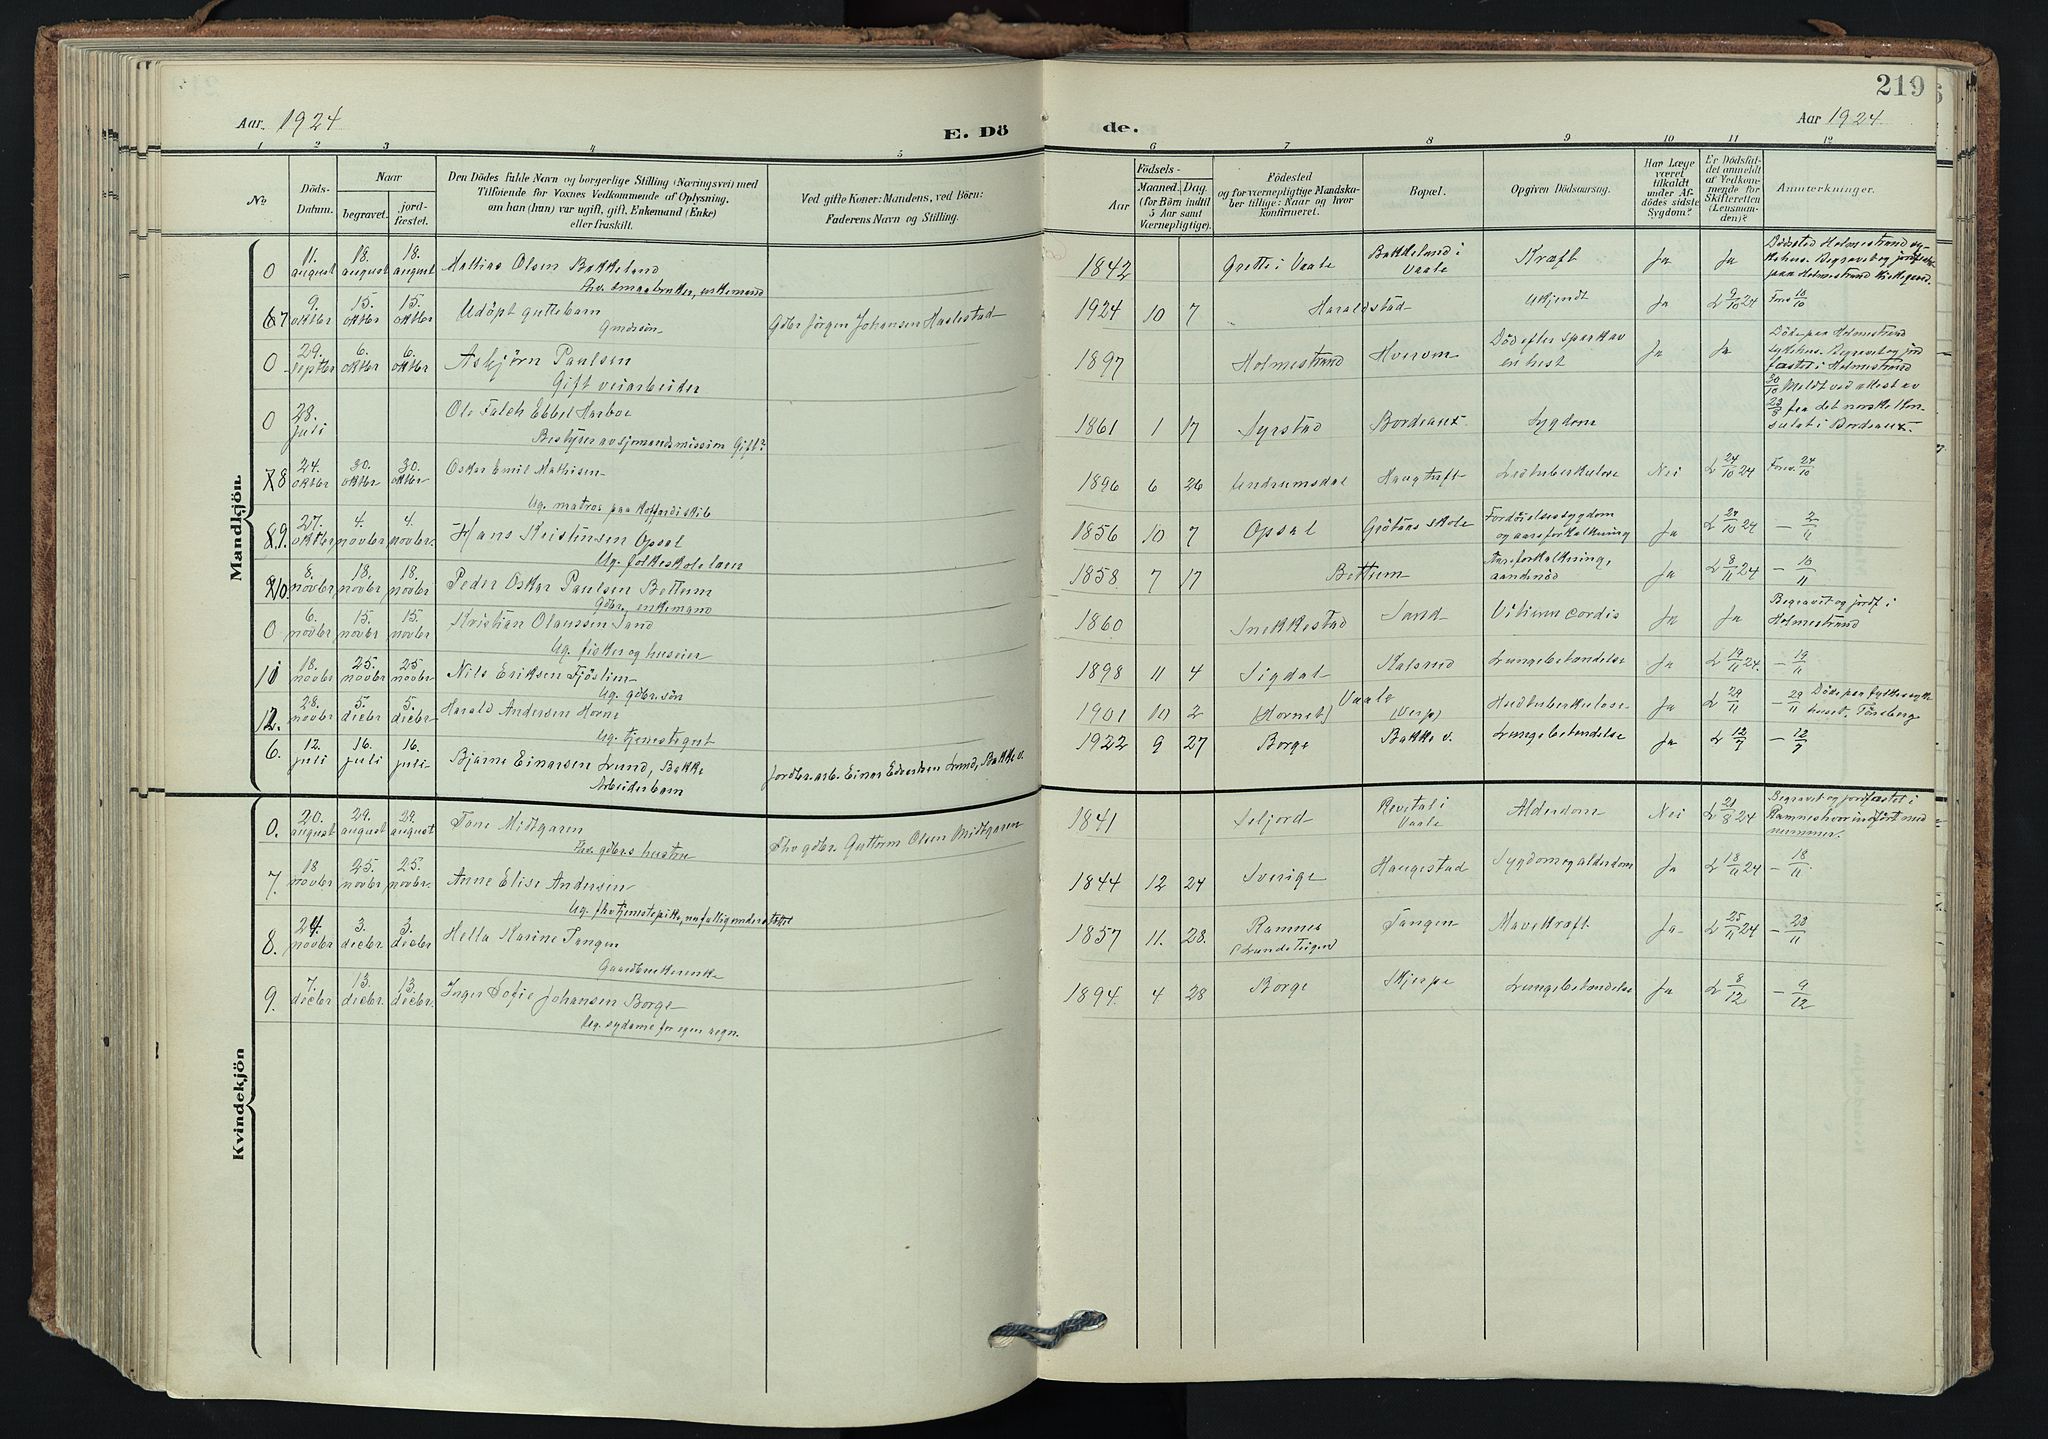 219
Aar. 1924
E. Dö
de.
Aar 1924
1 2 3 4 5 6 7 8 9 10 11 12
No
Döds-
Datum.
Naar
begravet.
jord-
fæstet.
Den Dödes fulde Navn og borgerlige Stilling (Næringsvei) med
Tilföiende for Voxnes Vedkommende af Oplysning,
om han (hun) var ugift, gift, Enkemand (Enke)
eller fraskilt.
Ved gifte Koner: Mandens, ved Börn:
Faderens Navn og Stilling.
Aar
Födsels-
Maaned. Dag.
(for Börn indtil
5 Aar samt
Værnepligtige).
Födested
og for værnepligtige Mandska-
ber tillige: Naar og hvor
konfirmeret.
Bopæl.
Opgiven Dödsaarsag.
Har Læge
været
tilkaldt
under Af-
dödes sidste
Sygdom?
Er Dödsfal-
det anmeldt
af Vedkom-
mende for
Skifteretten
(Lensman-
den)?
Anmærkninger.
Mandkjön.
0 11. august 18. august 18. august Mathias Olsen Bakkeland
Fhv. smaabruker, enkemand
1842 Grette i Vaale Bakkeland i Vaale Kræft Ja Ja Dödsted Holmestrand syke-
hus. Begravet og jordfæstet
paa Holmestrand kirkegaard.
7 9. oktbr 15. oktbr 15. oktbr Udöpt guttebarn
Gmdr sön
Gdbr Jörgen Johansen Haslestad
1924 10 7 Haraldstad Ukjendt Ja L 9/10 24 Frev 10/10
0 29. septbr 6. oktbr 6. oktbr Asbjörn Paulsen
Gift veiarbeider
1897 Holmestrand Hverven Död efter spark av
en hest Ja Ja Döde paa Holmestrand
sykehus. Begravet og jord
fæstet i Holmestrand
0 28. juli Ole Falch Ebbel Harboe
Bestyrer av sjomandsmission Gift?
1861 1 17 Syrstad Bordeaux Sygdom 30/10 Meldt ved attest av
23/8 fra det norske Kon-
sulat i Bordeaux.
8 24. oktbr 30. oktbr 30. oktbr Oskar Emil Mathisen
Ug. matros paa koffardiskib
1896 6 26 Undrumsdal Haugtuft Lestuberkulose Nei L 24/10 24 Frev. 24/10
9. 27. oktbr 4. novbr 4. novbr. Hans Kristensen Opsal
Ug. folkeskolelærer
1856 10 7 Opsal Gretåns skole Fordöielsessygdom
og aareforkalkning Ja L 27/10 24 - 2/11
10. 8. novbr 18. novbr 18. novbr Peder Oskar Paulsen Bettum
Gdbr., enkemand
1858 7 17 Bettum Aareforkalkning,
aandenöd Ja L 8/11 24 - 10/11
0 6. novbr 15. novbr 15. novbr Kristian Olaussen Sand
Ug. fisker og huseier
1860 Snekkestad Sand Vitium cordis Ja Ja Begravet og jordf i
Holmestrand
11 18. novbr 25. novbr 25 novbr Nils Eriksen Fjöslien
Ug. gdbr. sön
1898 11 4 Sigdal Kalsrud Lungebetændelse Ja L 19/11 24. - 19/11
12. 28. novbr 5. decbr 5. decbr Harald Andersen Horne
Ug. tjenestegut
1901 10 2 Vaale
(Hornet) (Verp) Hudtuberkulose Ja L 29/11 - 29/11 Döde paa fylkessyke
huset, Tönsberg
6. 12. juli 16. juli 16. juli Bjarne Einarsen Lund, Bakke
Arbeiderbarn
Jordbr. arb. Einar Edvardsen Lund, Bakke v.
1922 9 27 Borge Bakke v. Lungebetændelse Ja L 12/7 - 12/7
Kvindekjön
0. 20. august 29. august 29. august Tone Midtgaren
Fhv. gdbr.s hustru
Fhv gdbr. Guttorm Olsen Midtgaren
1841 Seljord Revetal i Vaale Alderdom Nei L 21/8 24 Begravet og jordfæstet i
Ramnes hvor indfört med
nummer.
7. 18 novbr 25. novbr 25. novbr. Anne Elise Andersen
Ug. fhv tjenestepike, nu fattigunderstöttet
1844 12 24 Sverige Haugestad Sygdom og alderdom Ja L 18/11 24 - 18/11.
8. 24. novbr 3. decbr 3. decbr Hella Karine Tangen
Gaardbrukerenke
1857 11. 28. Ramnes
(Lundeteigen) Tangen Mavekræft Ja L 25/11 24 - 28/11
9. 7. decbr 13. decbr. 13. decbr. Inger Sofie Johansen Borge
Ug. sydame for egen regn.
1894. 4 28 Borge Skjerpe Lungebetændelse Ja L 8/12 - 9/12